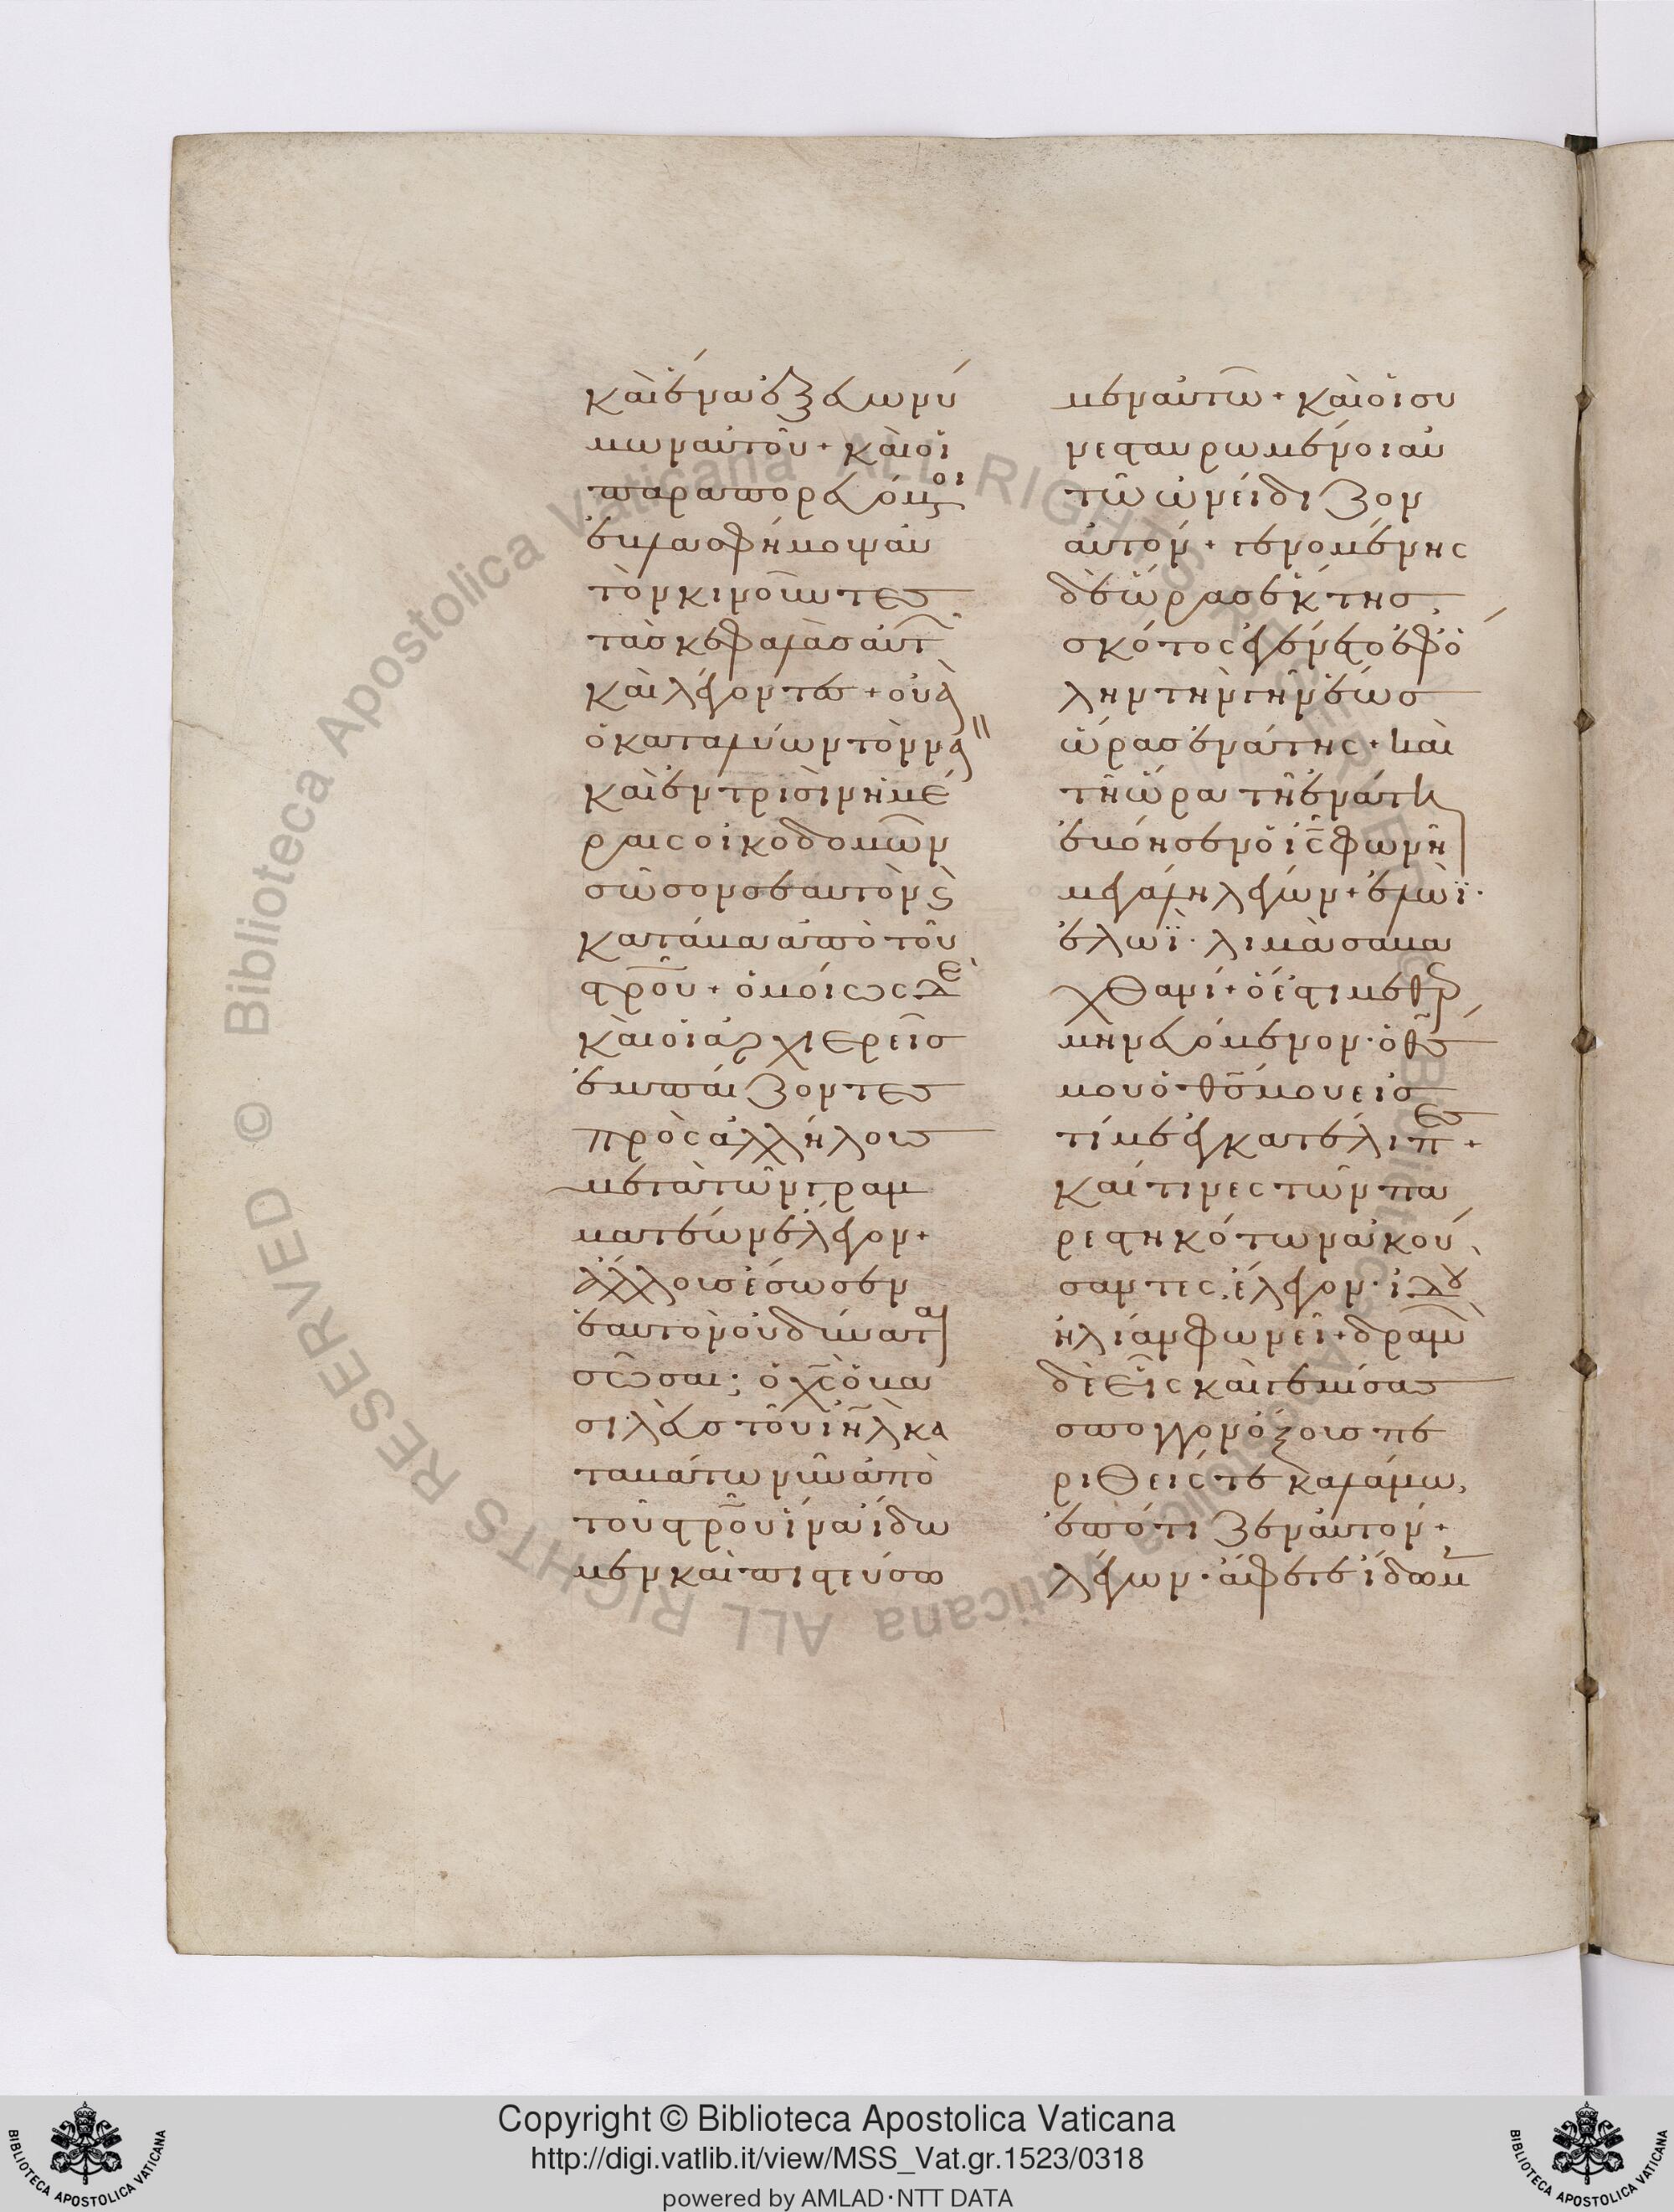 καὶ ἕνα ἐξ εὐωνύ
μων αὐτοῦ + καὶ οἱ
παραπορευόμ(εν)οι
ἐβλασφήμουν αὐ
τὸν κινοῦντες
τὰς κεφαλὰς αὐτ
καὶ λέγοντες + οὐὰ
ὁ καταλύων τὸν να
καὶ ἐν τρισὶν ἡμέ
ραις οἰκοδομῶν
σῶσον σεαυτὸν κ(αὶ)
κατάβα ἀπὸ τοῦ
στρου + ὁμοίως δὲ
καὶ οἱ ἀρχιερεῖς
ἐμπαίζοντες
πρὸς ἀλλήλους
μετὰ τῶν γραμ
ματέων ἔλεγον +
ἄλλους ἔσωσεν
ἑαυτὸν οὐ δύναται
σῶσαι; ὁ χς ὁ βα
σιλεὺς τοῦ ιηλ κα
ταβάτω νῦν ἀπὸ
τοῦ στρου ἵνα ἴδω
μεν καὶ πιστεύσω
μεν αὐτῶ + καὶ οἱ συ
νεσταυρωμένοι αὐ
τῶ ὠνείδιζον
αὐτόν + γενομένης
δὲ ὥρας ἕκτης,
σκότος ἐγένετο ἐφ' ὅ
λην τὴν γῆν ἕως
ὥρας ἐνάτης + καὶ
τῆ ὥρα τῆ ἐνάτη
ἐβόησεν ὁ ις φωνῆ
μεγάλη λέγων + ἐλωῒ ·
ἐλωῒ · λιμὰ σαβα
χθανί + ὅ ἐστι μεθερ
μηνευόμενον · ὁ θς
μου ὁ θς μου εἰς
τί με ἐγκατέλιπες +
καί τινες τῶν πα
ρεστηκότων ἀκού
σαντες, ἔλεγον · ἰδοὺ
ἠλίαν φωνεῖ + δραμὼν
δὲ εἷς καὶ γεμίσας
σπόγγον ὄξους πε
ριθείς τε καλάμω,
ἐπότιζεν αὐτόν +
λέγων · ἄφετε ἴδωμ
Copyright © Biblioteca Apostolica Vaticana
http://digi.vatlib.it/view/MSS_Vat.gr.1523/0318
powered by AMLAD·NTT DATA
BIBLIOTECA APOSTOLICA VATICANA
BIBLIOTECA APOSTOLICA VATICANA
© Biblioteca Apostolica Vaticana ALL RIGHTS RESERVED
© Biblioteca Apostolica Vaticana ALL RIGHTS RESERVED